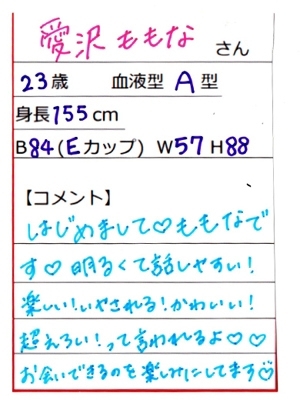 愛沢ももな さん
23歳 血液型 A型
身長155cm
B84(Eカップ) W57 H88
【コメント】
はじめまして♡ももなで
す♡明るくて話しやすい!
楽しい!いやされる!かわいい!
超えろい!って言われるよ♡♡
お会いできるのを楽しみにしてます♡